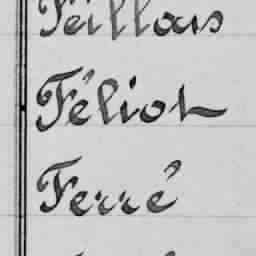 Feillas
Féliot
Ferré